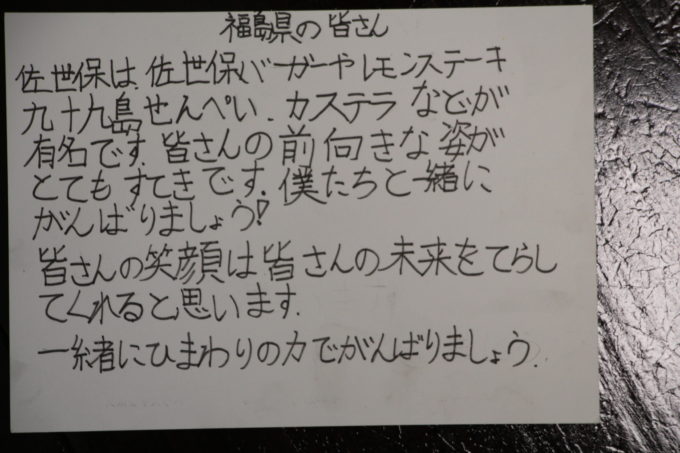 福島県の皆さん
佐世保は、佐世保バーガーやレモンステーキ
九十九島せんぺい、カステラなどが
有名です。皆さんの前向きな姿が
とてもすてきです。僕たちと一緒に
がんばりましょう!
皆さんの笑顔は皆さんの未来をてらし
てくれると思います。
一緒にひまわりの力でがんばりましょう。